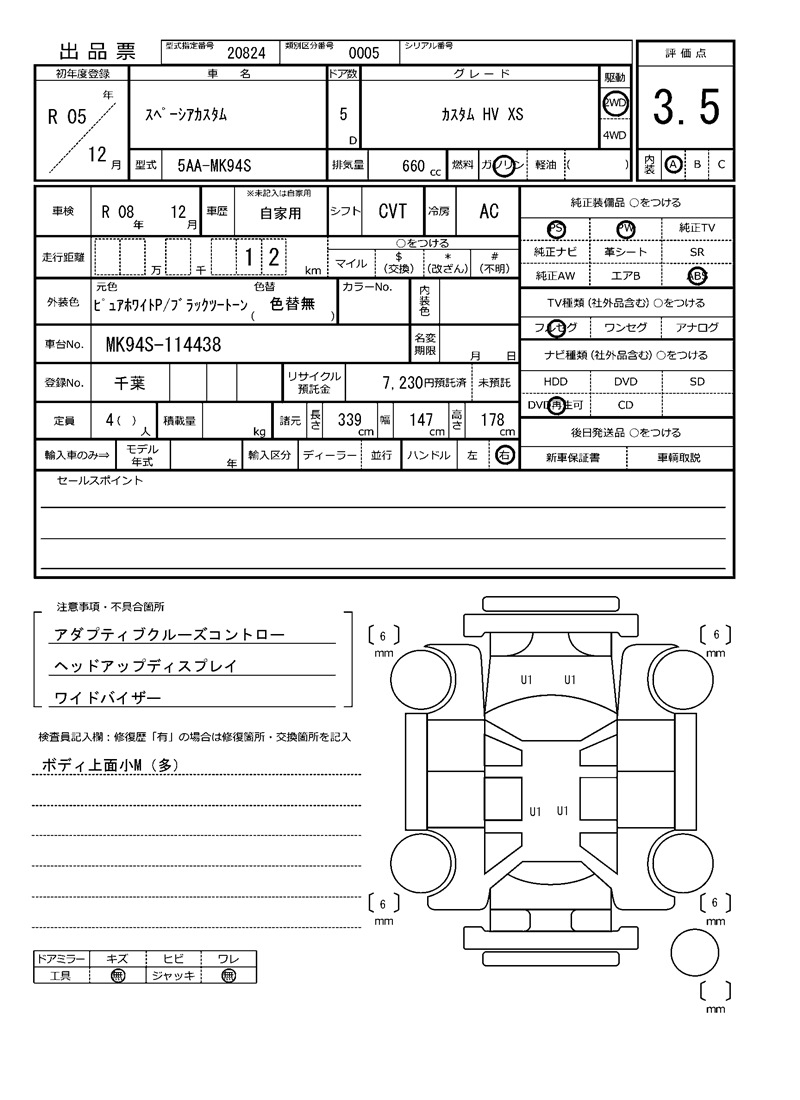 出品票 型式指定番号 20824 類別区分番号 0005 シリアル番号
評価点
初年度登録 車名 ドア数 グレード 駆動
R 05 年 12 月 スペーシアカスタム 5 D カスタム HV XS 2WD 4WD
3.5
型式 5AA-MK94S 排気量 660 cc 燃料 ガソリン 軽油 ( )
内装 A B C
車検 R 08 年 12 月 車歴 ※未記入は自家用 自家用 シフト CVT 冷房 AC
走行距離 万 千 1 2 km
○をつける
マイル $ (交換) * (改ざん) # (不明)
外装色 元色 ピュアホワイトP/ブラックツートーン 色替 ( 色替無 ) カラーNo. 内装色
車台No. MK94S-114438 名変期限 月 日
登録No. 千葉 リサイクル預託金 7,230円預託済 未預託
定員 4 ( ) 人 積載量 kg 諸元 長さ 339 cm 幅 147 cm 高さ 178 cm
輸入車のみ⇒ モデル年式 年 輸入区分 ディーラー 並行 ハンドル 左 右
純正装備品 ○をつける
PS PW 純正TV
純正ナビ 革シート SR
純正AW エアB ABS
TV種類(社外品含む) ○をつける
フルセグ ワンセグ アナログ
ナビ種類(社外品含む) ○をつける
HDD DVD SD
DVD再生可 CD
後日発送品 ○をつける
新車保証書 車輌取説
セールスポイント
注意事項・不具合箇所
アダプティブクルーズコントロー
ヘッドアップディスプレイ
ワイドバイザー
検査員記入欄：修復歴「有」の場合は修復箇所・交換箇所を記入
ボディ上面小M（多）
ドアミラー キズ ヒビ ワレ
工具 無 ジャッキ 無
〔 6 〕 mm 〔 6 〕 mm
U1 U1
U1 U1
〔 6 〕 mm 〔 6 〕 mm
〔 〕 mm